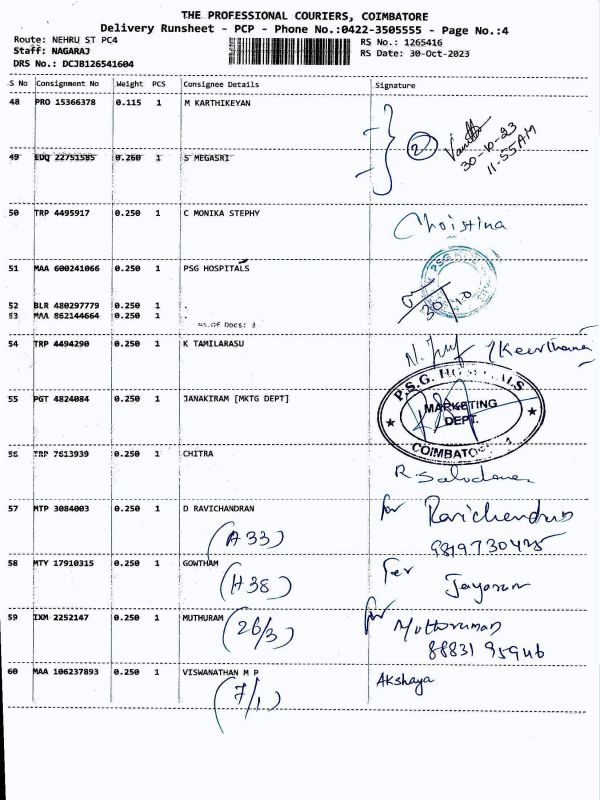 THE PROFESSIONAL COURIERS, COIMBATORE
Delivery Runsheet - PCP - Phone No.:0422-3505555 - Page No.:4
Route: NEHRU ST PC4
RS No.: 1265416
Staff: NAGARAJ
RS Date: 30-Oct-2023
DRS No.: DCJB126541604
S No Consignment No Weight PCS Consignee Details Signature
48 PRO 15366378 0.115 1 M KARTHIKEYAN
2
30-10-23
11.55AM
49 EDQ 22751585 0.260 1 S MEGASRI
50 TRP 4495917 0.250 1 C MONIKA STEPHY
Christina
51 MAA 600241066 0.250 1 PSG HOSPITALS
52 BLR 480297779 0.250 1 .
53 MAA 862144664 0.250 1 .
No.Of Docs: 3
30/10
54 TRP 4494290 0.250 1 K TAMILARASU
Keerthana
55 PGT 4824084 0.250 1 JANAKIRAM [MKTG DEPT]
P.S.G. HOSPITALS
MARKETING
DEPT.
COIMBATORE
56 TRP 7613939 0.250 1 CHITRA
57 MTP 3084003 0.250 1 D RAVICHANDRAN
for Ravichandran
(A 33)
58 MTY 17910315 0.250 1 GOWTHAM
for
(H38)
59 IXM 2252147 0.250 1 MUTHURAM
for
(26/3)
88831 95946
60 MAA 106237893 0.250 1 VISWANATHAN M P
Akshaya
(7/1)